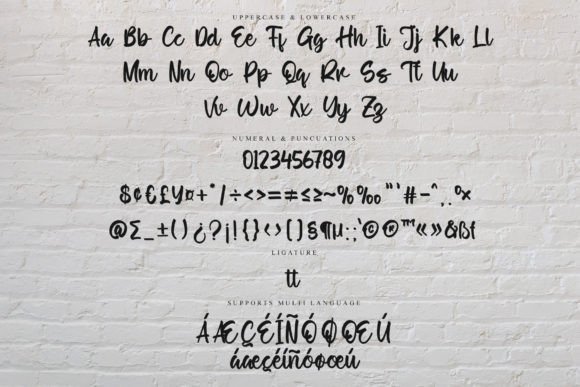 UPPERCASE & LOWERCASE
Aa Bb Cc Dd Ee Ff Gg Hh Ii Jj Kk Ll
Mm Nn Oo Pp Qq Rr Ss Tt Uu
Vv Ww Xx Yy Zz
NUMERAL & PUNCUATIONS
0123456789
$¢€£¥¤+*/÷<>=≠≤≥~%‰"'#-^,.
@∑_±()¿?¡!{}‹›[]§¶µ:;'©®™«»&ßf
LIGATURE
tt
SUPPORTS MULTI LANGUAGE
ÁÆÇÉÍÑÓØŒÚ
áæçéíñóøœú